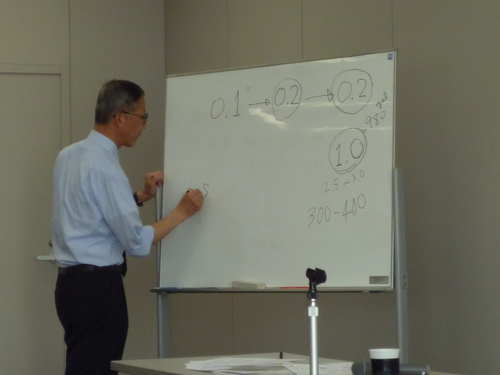 0.1 → 0.2 → 0.2
980
1.0
2.5 ~ 3.0
300-400
S